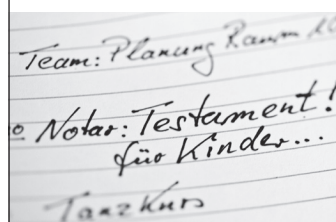 Team: Planung Raum
Notar: Testament!
für Kinder...
Tanzkurs